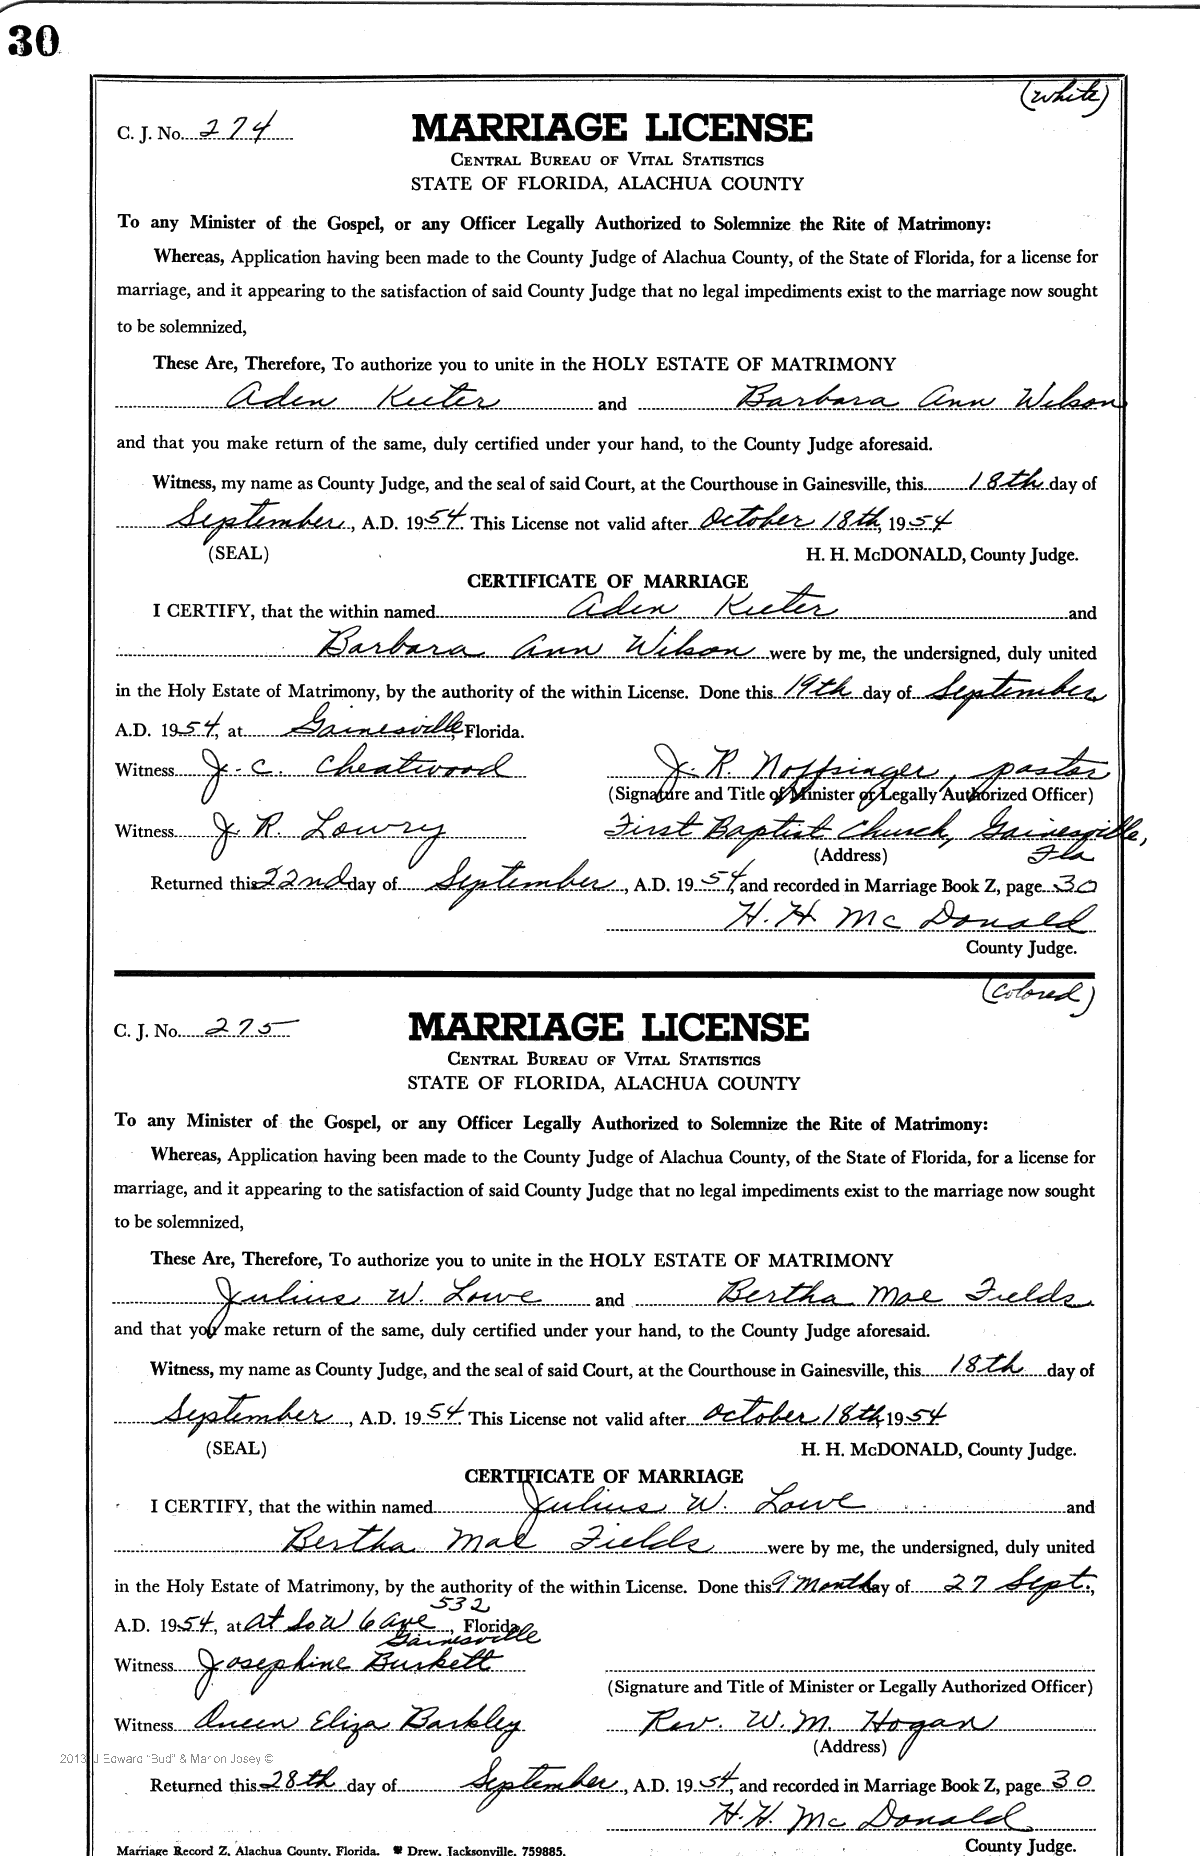 30
(white)
C. J. No. 274 MARRIAGE LICENSE
CENTRAL BUREAU OF VITAL STATISTICS
STATE OF FLORIDA, ALACHUA COUNTY
To any Minister of the Gospel, or any Officer Legally Authorized to Solemnize the Rite of Matrimony:
Whereas, Application having been made to the County Judge of Alachua County, of the State of Florida, for a license for
marriage, and it appearing to the satisfaction of said County Judge that no legal impediments exist to the marriage now sought
to be solemnized,
These Are, Therefore, To authorize you to unite in the HOLY ESTATE OF MATRIMONY
Aden Keeter and Barbara Ann Wilson
and that you make return of the same, duly certified under your hand, to the County Judge aforesaid.
Witness, my name as County Judge, and the seal of said Court, at the Courthouse in Gainesville, this 18th day of
September, A.D. 1954. This License not valid after October 18th, 1954
(SEAL) H. H. McDONALD, County Judge.
CERTIFICATE OF MARRIAGE
I CERTIFY, that the within named Aden Keeter and
Barbara Ann Wilson were by me, the undersigned, duly united
in the Holy Estate of Matrimony, by the authority of the within License. Done this 19th day of September,
A.D. 1954, at Gainesville, Florida.
Witness J. C. Cheatwood J. R. Noffsinger, pastor
(Signature and Title of Minister or Legally Authorized Officer)
Witness J R Lowry First Baptist Church, Gainesville,
(Address) Fla
Returned this 22nd day of September, A.D. 1954, and recorded in Marriage Book Z, page 30
H. H. McDonald
County Judge.
(colored)
C. J. No. 275 MARRIAGE LICENSE
CENTRAL BUREAU OF VITAL STATISTICS
STATE OF FLORIDA, ALACHUA COUNTY
To any Minister of the Gospel, or any Officer Legally Authorized to Solemnize the Rite of Matrimony:
Whereas, Application having been made to the County Judge of Alachua County, of the State of Florida, for a license for
marriage, and it appearing to the satisfaction of said County Judge that no legal impediments exist to the marriage now sought
to be solemnized,
These Are, Therefore, To authorize you to unite in the HOLY ESTATE OF MATRIMONY
Julius W. Lowe and Bertha Mae Fields
and that you make return of the same, duly certified under your hand, to the County Judge aforesaid.
Witness, my name as County Judge, and the seal of said Court, at the Courthouse in Gainesville, this 18th day of
September, A.D. 1954. This License not valid after October 18th, 1954
(SEAL) H. H. McDONALD, County Judge.
CERTIFICATE OF MARRIAGE
I CERTIFY, that the within named Julius W. Lowe and
Bertha Mae Fields were by me, the undersigned, duly united
in the Holy Estate of Matrimony, by the authority of the within License. Done this 9 Month day of 27 Sept.,
532
A.D. 1954, at at So W 6 ave, Florida
Gainesville
Witness Josephine Burkett
(Signature and Title of Minister or Legally Authorized Officer)
Witness Queen Eliza Barkley Rev. W. M. Hogan
(Address)
2013 J Edward "Bud" & Marion Josey ©
Returned this 28th day of September, A.D. 1954, and recorded in Marriage Book Z, page 30
H. H. McDonald
County Judge.
Marriage Record Z, Alachua County, Florida. Drew, Jacksonville, 759885.